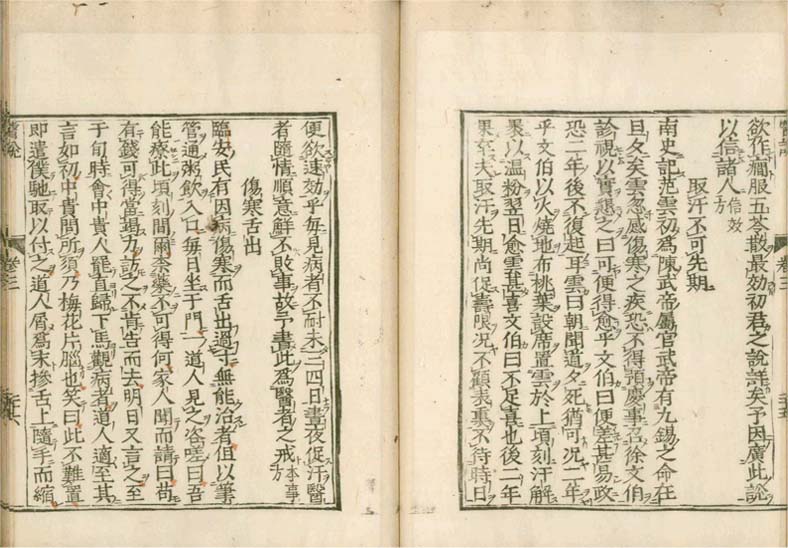 欲作癎服五苓散最効初君之說詳矣予因廣此說
以信諸人信效方
取汗不可先期
南史記范雲初爲陳武帝屬官武帝有九錫之命在
旦夕矣雲忽感傷寒之疾恐不得預慶事召徐文伯
診視以實懇之曰可便得愈乎文伯曰便差甚易政
恐二年後不復起耳雲曰朝聞道夕死猶可况二年
乎文伯以火燒地布桃葉設席置雲於上頃刻汗解
裹以温粉翌日愈雲甚喜文伯曰不足喜也後二年
果卒夫取汗先期尚促壽限况不顧表裏不待時日
便欲速効乎每見病者不耐未三四日晝夜促汗醫
者隨情順意鮮不敗事故予書此爲醫者之戒本事方
傷寒舌出
臨安民有因病傷寒而舌出過寸無能治者但以筆
管通粥飲入口每日坐于門一道人見之咨嗟曰吾
能療此頃刻間爾柰藥不可得何家人聞而請曰苟
有錢可得當竭力訪之不肯告而去明日又言之至
于旬時會中貴人罷直歸下馬觀病者道人適至其
言如初中貴問所須乃梅花片腦也笑曰此不難置
即遣僕馳取以付之道人屑爲末摻舌上隨手而縮
卷三
卷三